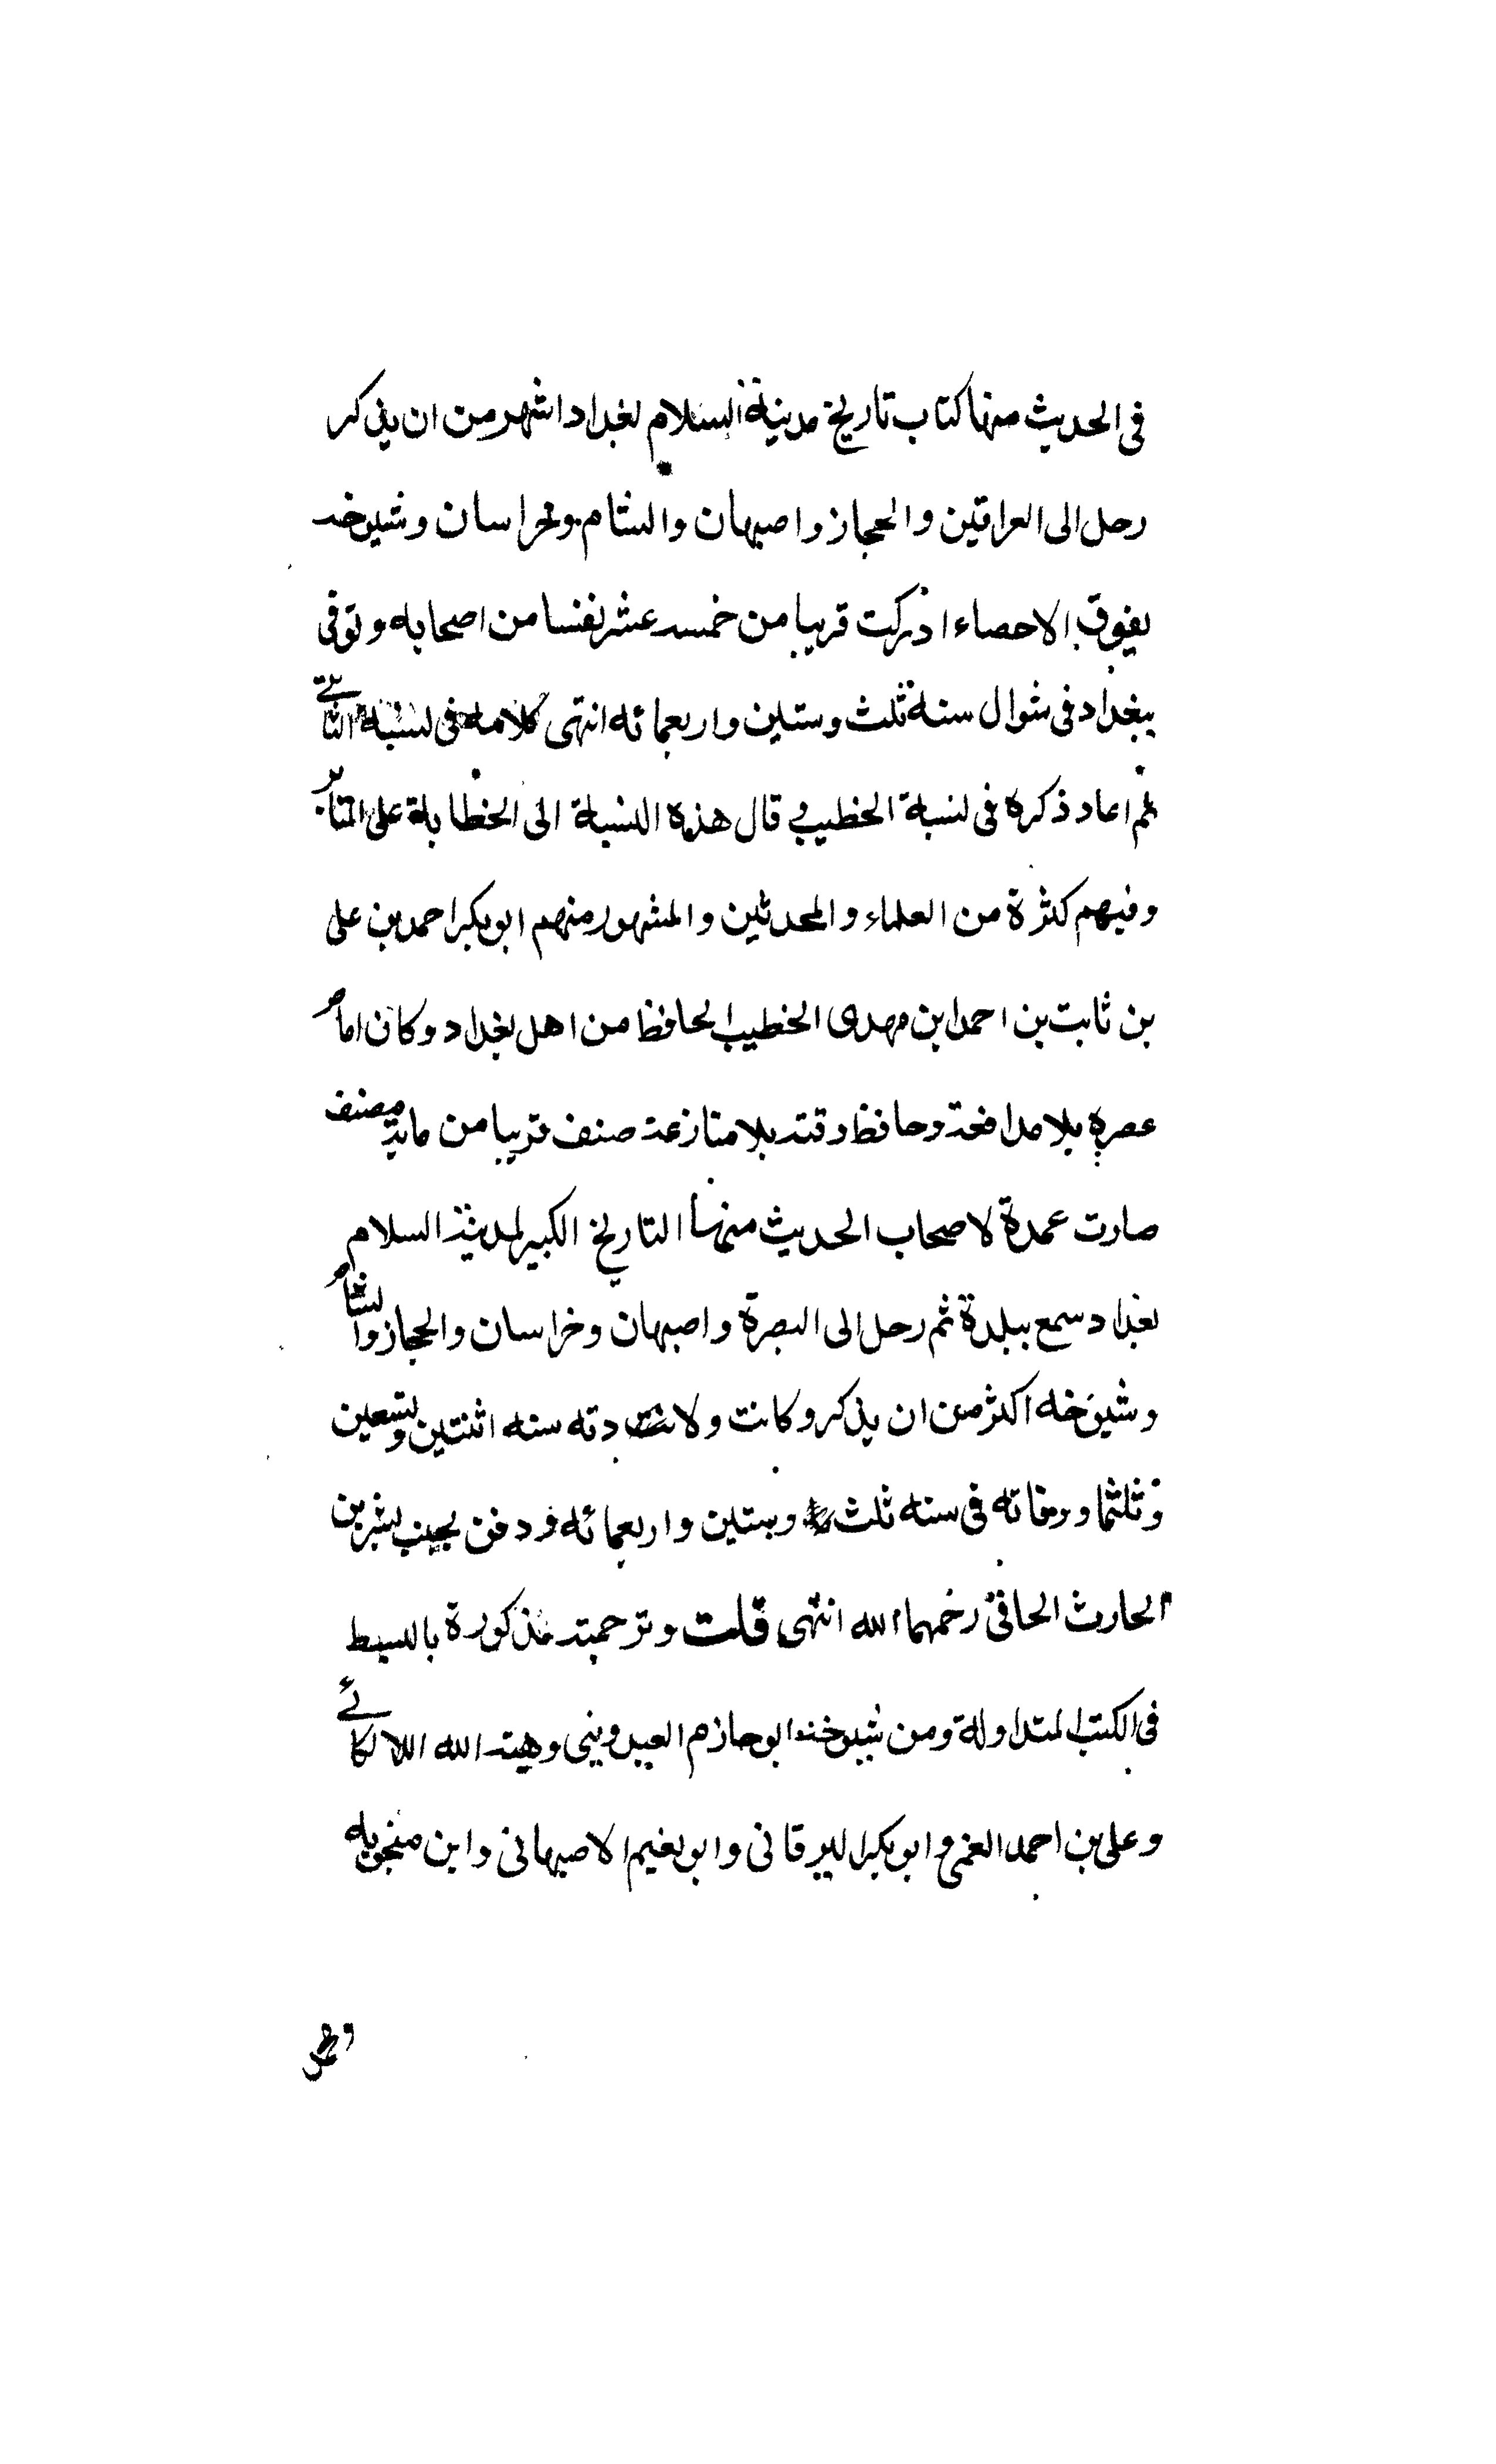 فى الحديث منها كتاب تاريخ مدينة السلام بغداد اشهر من ان يذكر
رحل الى العراقين والحجاز واصبهان والشام وخراسان وشيوخه
يفوق الاحصاء ادركت قريبا من خمسه عشر نفسا من اصحابه وتوفى
ببغداد فى شوال سنة ثلث وستين واربعمائه انتهى كلامه فى نسبة
ثم اعاد ذكره فى نسبة الخطيبي قال هذه النسبة الى الخطابة على المنابر
وفيهم كثرة من العلماء والمحدثين والمشهور منهم ابو بكر احمد بن على
بن ثابت بن احمد ابن مهدى الخطيب الحافظ من اهل بغداد وكان امام
عصره بلا مدافعة وحافظ وقته بلا منازعة صنف قريبا من ماية مصنف
صارت عمدة لاصحاب الحديث منها التاريخ الكبير لمدينة السلام
بغداد سمع ببلدة ثم رحل الى البصرة واصبهان وخراسان والحجاز والشام
وشيوخه اكثر من ان يذكر وكانت ولادته سنه اثنتين وتسعين
وثلثما ووفاته فى سنه ثلث وستين واربعمائه ودفن بجنب بشر بن
الحارث الحافى رحمهما الله انتهى قلت وترجمته مذكورة بالبسط
فى الكتب المتداولة ومن شيوخه ابو حازم العبدوينى وهبة الله اللالكائے
وعلى بن احمد وابو بكر البرقانى وابو نعيم الاصبهانى وابن منجويه